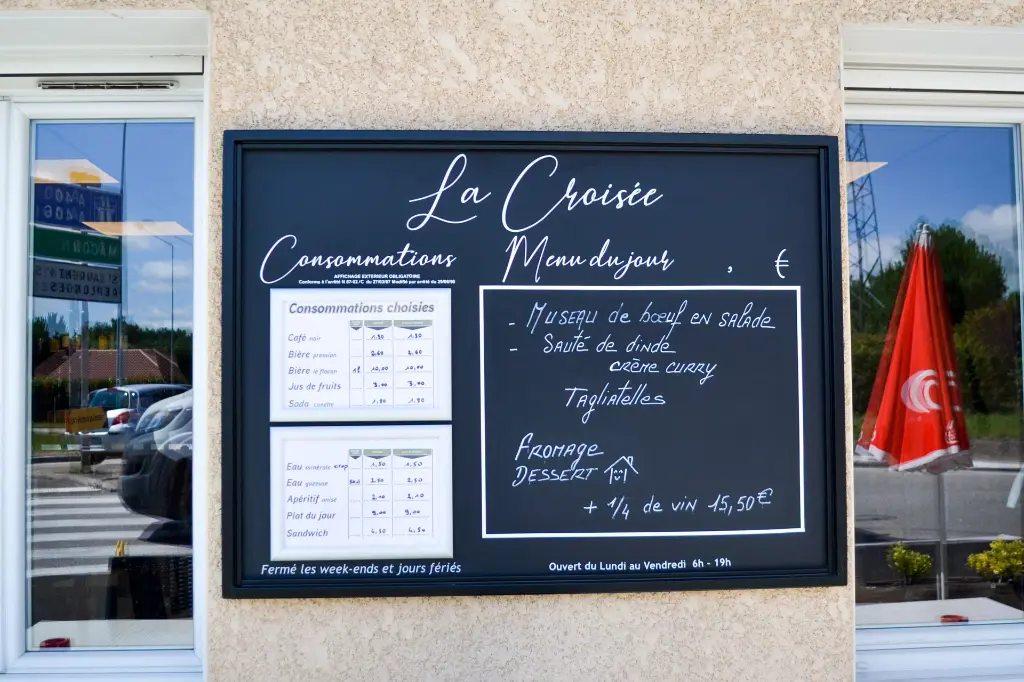 La Croisée
Consommations
AFFICHAGE EXTERIEUR OBLIGATOIRE
Conforme à l'arrêté N 87-02/C du 27/03/87 Modifié par arrêté du
Consommations choisies
Café noir 1,30 1,30
Bière pression 2,60 2,60
Bière le flacon 10,00 10,00
Jus de fruits
Soda 1,90 1,90
Eau minérale 1,50 1,50
Eau gazeuse 2,50 2,50
Apéritif anisé
Plat du jour 9,00 9,00
Sandwich 4,50 4,50
Fermé les week-ends et jours fériés
Menu du jour , €
- Museau de bœuf en salade
- Sauté de dinde
crème curry
Tagliatelles
Fromage
Dessert
+ 1/4 de vin 15,50€
Ouvert du Lundi au Vendredi 6h - 19h